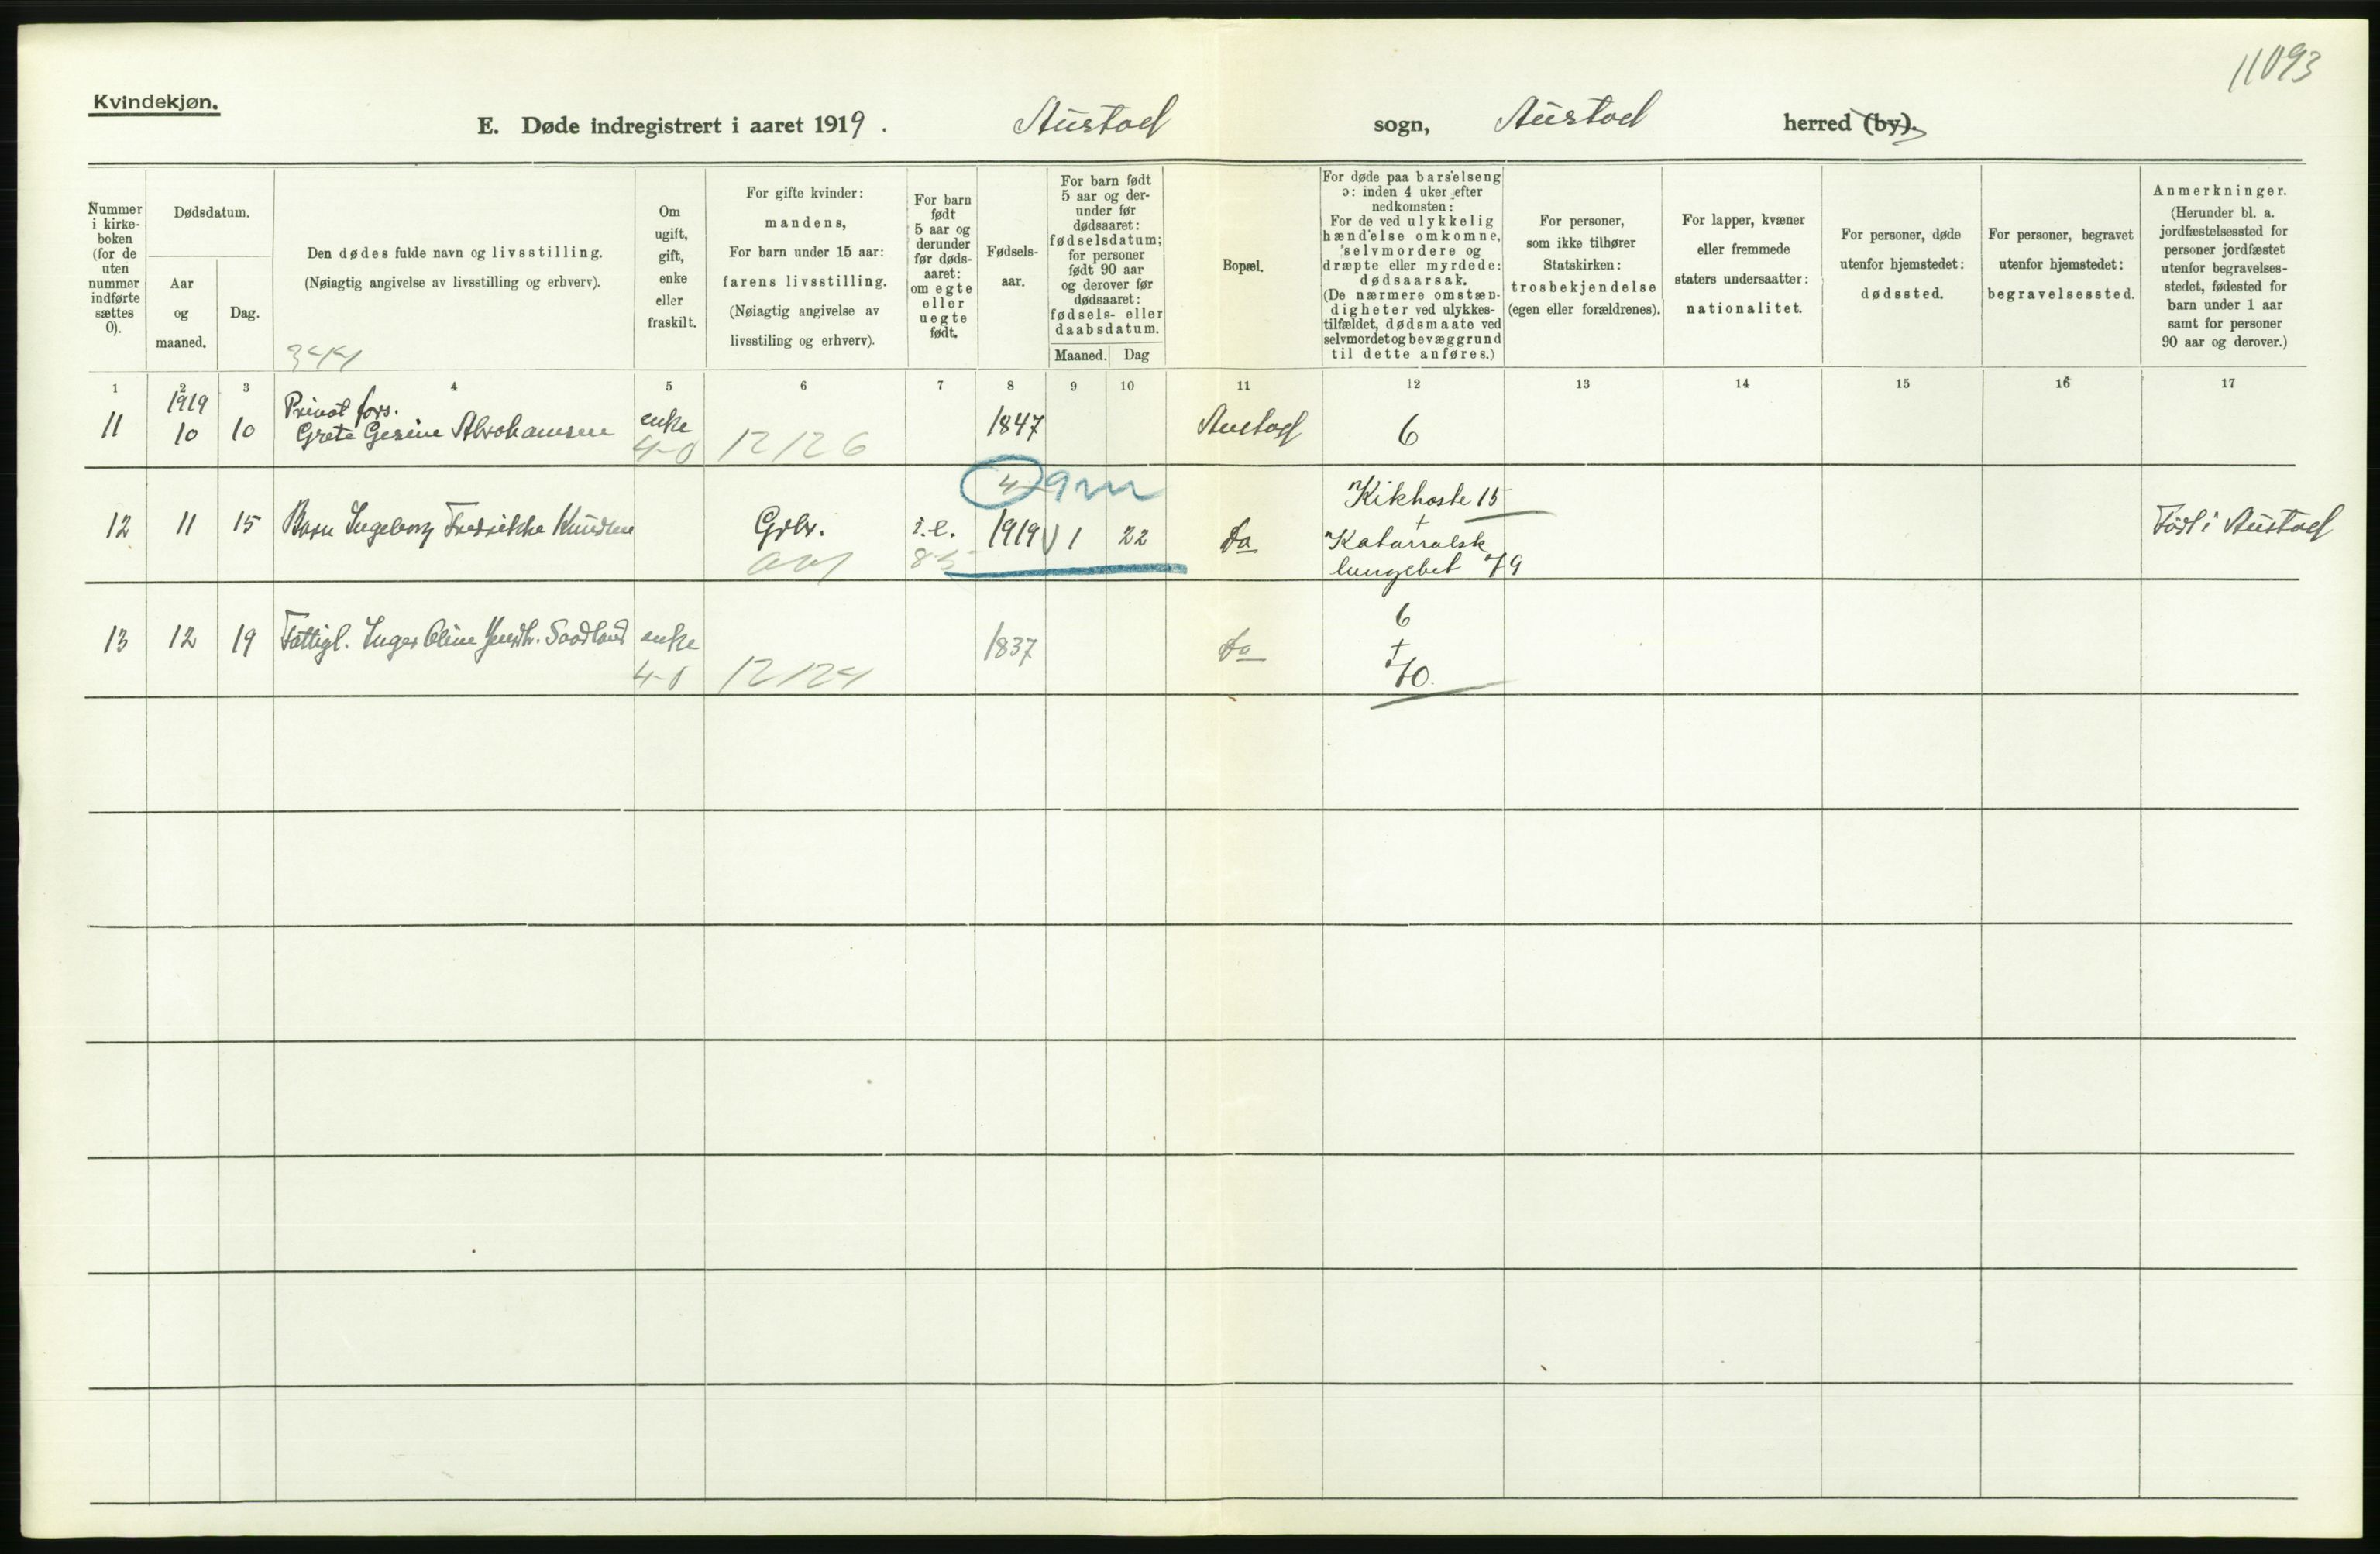 11093
Kvindekjøn.
E. Døde indregistrert i aaret 1919. Austad sogn, Austad herred (by).
Nummer i kirke-boken (for de uten nummer indførte sættes 0).
Dødsdatum.
Aar og maaned.
Dag.
Den dødes fulde navn og livsstilling.
(Nøiagtig angivelse av livsstilling og erhverv).
Om ugift, gift, enke eller fraskilt.
For gifte kvinder:
mandens,
For barn under 15 aar:
farens livsstilling.
(Nøiagtig angivelse av
livsstiling og erhverv).
For barn
født
5 aar og
derunder
før døds-
aaret:
om egte
eller
uegte
født.
Fødsels-
aar.
For barn født
5 aar og der-
under før
dødsaaret:
fødselsdatum;
for personer
født 90 aar
og derover før
dødsaaret:
fødsels- eller
daabsdatum.
Maaned. Dag
Bopæl.
For døde paa barselseng
ɔ: inden 4 uker efter
nedkomsten:
For de ved ulykkelig
hændelse omkomne,
selvmordere og
dræpte eller myrdede:
dødsaarsak.
(De nærmere omstæn-
digheter ved ulykkes-
tilfældet, dødsmaate ved
selvmordet og bevæggrund
til dette anføres.)
For personer,
som ikke tilhører
Statskirken:
trosbekjendelse
(egen eller forældrenes).
For lapper, kvæner
eller fremmede
staters undersaatter:
nationalitet.
For personer, døde
utenfor hjemstedet:
dødssted.
For personer, begravet
utenfor hjemstedet:
begravelsessted.
Anmerkninger.
(Herunder bl. a.
jordfæstelsessted for
personer jordfæstet
utenfor begravelses-
stedet, fødested for
barn under 1 aar
samt for personer
90 aar og derover.)
1 2 3 4 5 6 7 8 9 10 11 12 13 14 15 16 17
1919
Privat fors.
11 10 10 Grete Gesine Abrahamsen enke 1847 Austad 6
4-0 12126
4 9m
Kikhoste 15
12 11 15 Barn Ingeborg Fredrikke Knudsen Grbr. i.e. 1919 1 22 do + Katarralsk Født i Austad
85 lungebet 79
6
13 12 19 Fattigl. Inger Oline Hendr. Saadland enke 1837 do +
4-0 12124 70